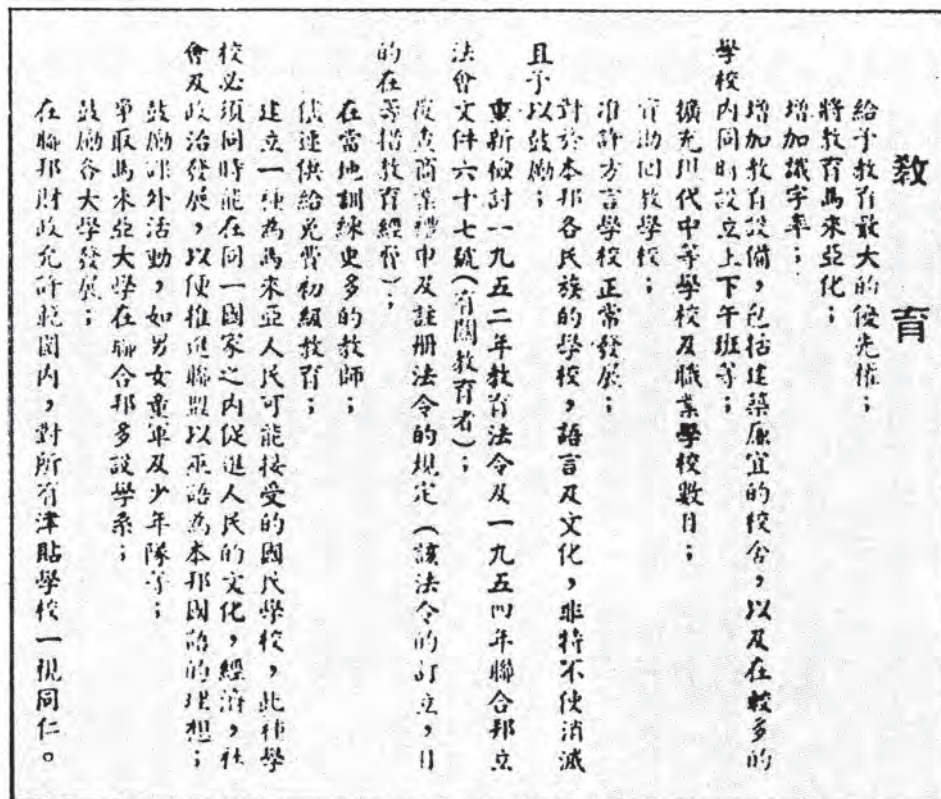 教育
給予教育最大的優先権；
將教育馬來亞化；
增加識字率；
增加教育設備，包括建築廉宜的校舍，以及在較多的
學校內同時設立上下午班等；
擴充現代中等學校及職業學校數目；
資助回教學校；
准許方言學校正常發展；
對於本邦各民族的學校，語言及文化，非特不使消滅
且予以鼓勵；
重新檢討一九五二年教育法令及一九五四年聯合邦立
法會文件六十七號（有關教育者）；
複查商業禮申及註册法令的規定（該法令的訂立，目
的在籌措教育經費）；
在當地訓練更多的教師；
儘速供給免費初級教育；
建立一種為馬來亞人民可能接受的國民學校，此種學
校必須同時能在同一國家之內促進人民的文化，經濟，社
會及政治發展，以便推進聯盟以巫語為本邦國語的理想；
鼓勵課外活動，如男女童軍及少年隊等；
爭取馬來亞大學在聯合邦多設學系；
鼓勵各大學發展；
在聯邦財政允許範圍內，對所有津貼學校一視同仁。